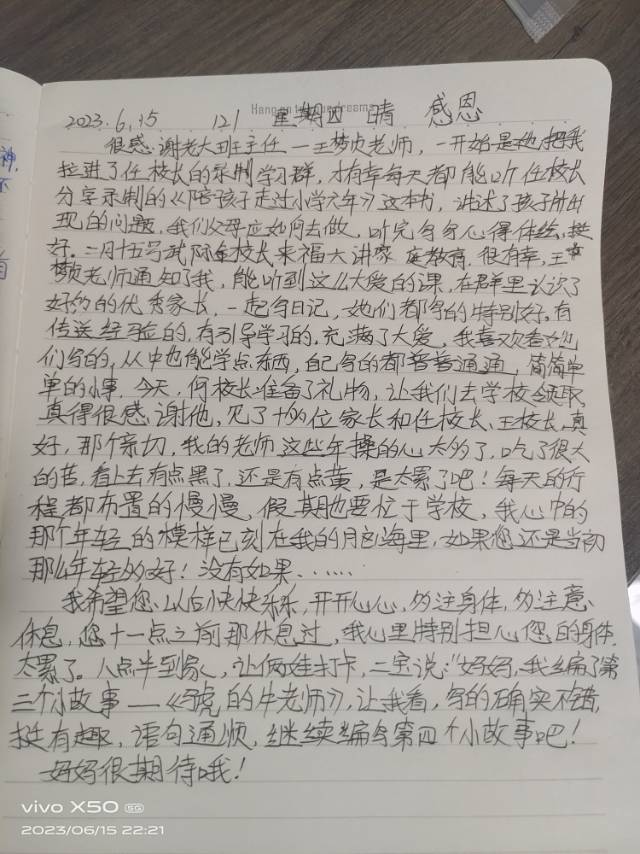 2023.6.15 121 星期四 晴 感恩
很感谢老大班主任一王梦贞老师,一开始是她把我
拉进了任校长的录制学习群,才有幸每天都能听任校长
分享录制的《陪孩子走过小学六年》这本书,讲述了孩子所出
现的问题,我们父母应如何去做,听完写写心得体会,挺
好。二月十五号武际金校长来福大讲家庭教育,很有幸,王
梦贞老师通知了我,能听到这么大爱的课,在群里认识了
好多的优秀家长,一起写日记,她们都写的特别好,有
传送经验的,有引导学习的,充满了大爱,我喜欢看她
们写的,从中也能学点东西,自己写的都普普通通,简简单
单的小事。今天,何校长准备了礼物,让我们去学校领取,
真得很感谢他,见了十多位家长和任校长、王校长,真
好,那个亲切,我的老师这些年操的心太多了,吃了很大
的苦,看上去有点黑了,还是有点黄,是太累了吧!每天的行
程都布置的慢慢,假期也要忙于学校,我心中的
那个年轻的模样已刻在我的脑海里,如果您还是当初
那么年轻多好!没有如果……
我希望您以后快快乐乐,开开心心,多注身体,多注意
休息,您十一点之前那休息过,我心里特别担心您的身体
太累了。八点半到家,让俩娃打卡,二宝说:“妈妈,我编了第
三个小故事—《的牛老师》,让我看,写的确实不错,
挺有趣,语句通顺,继续编写第四个小故事吧!
妈妈很期待哦!
vivo X50 5G
2023/06/15 22:21